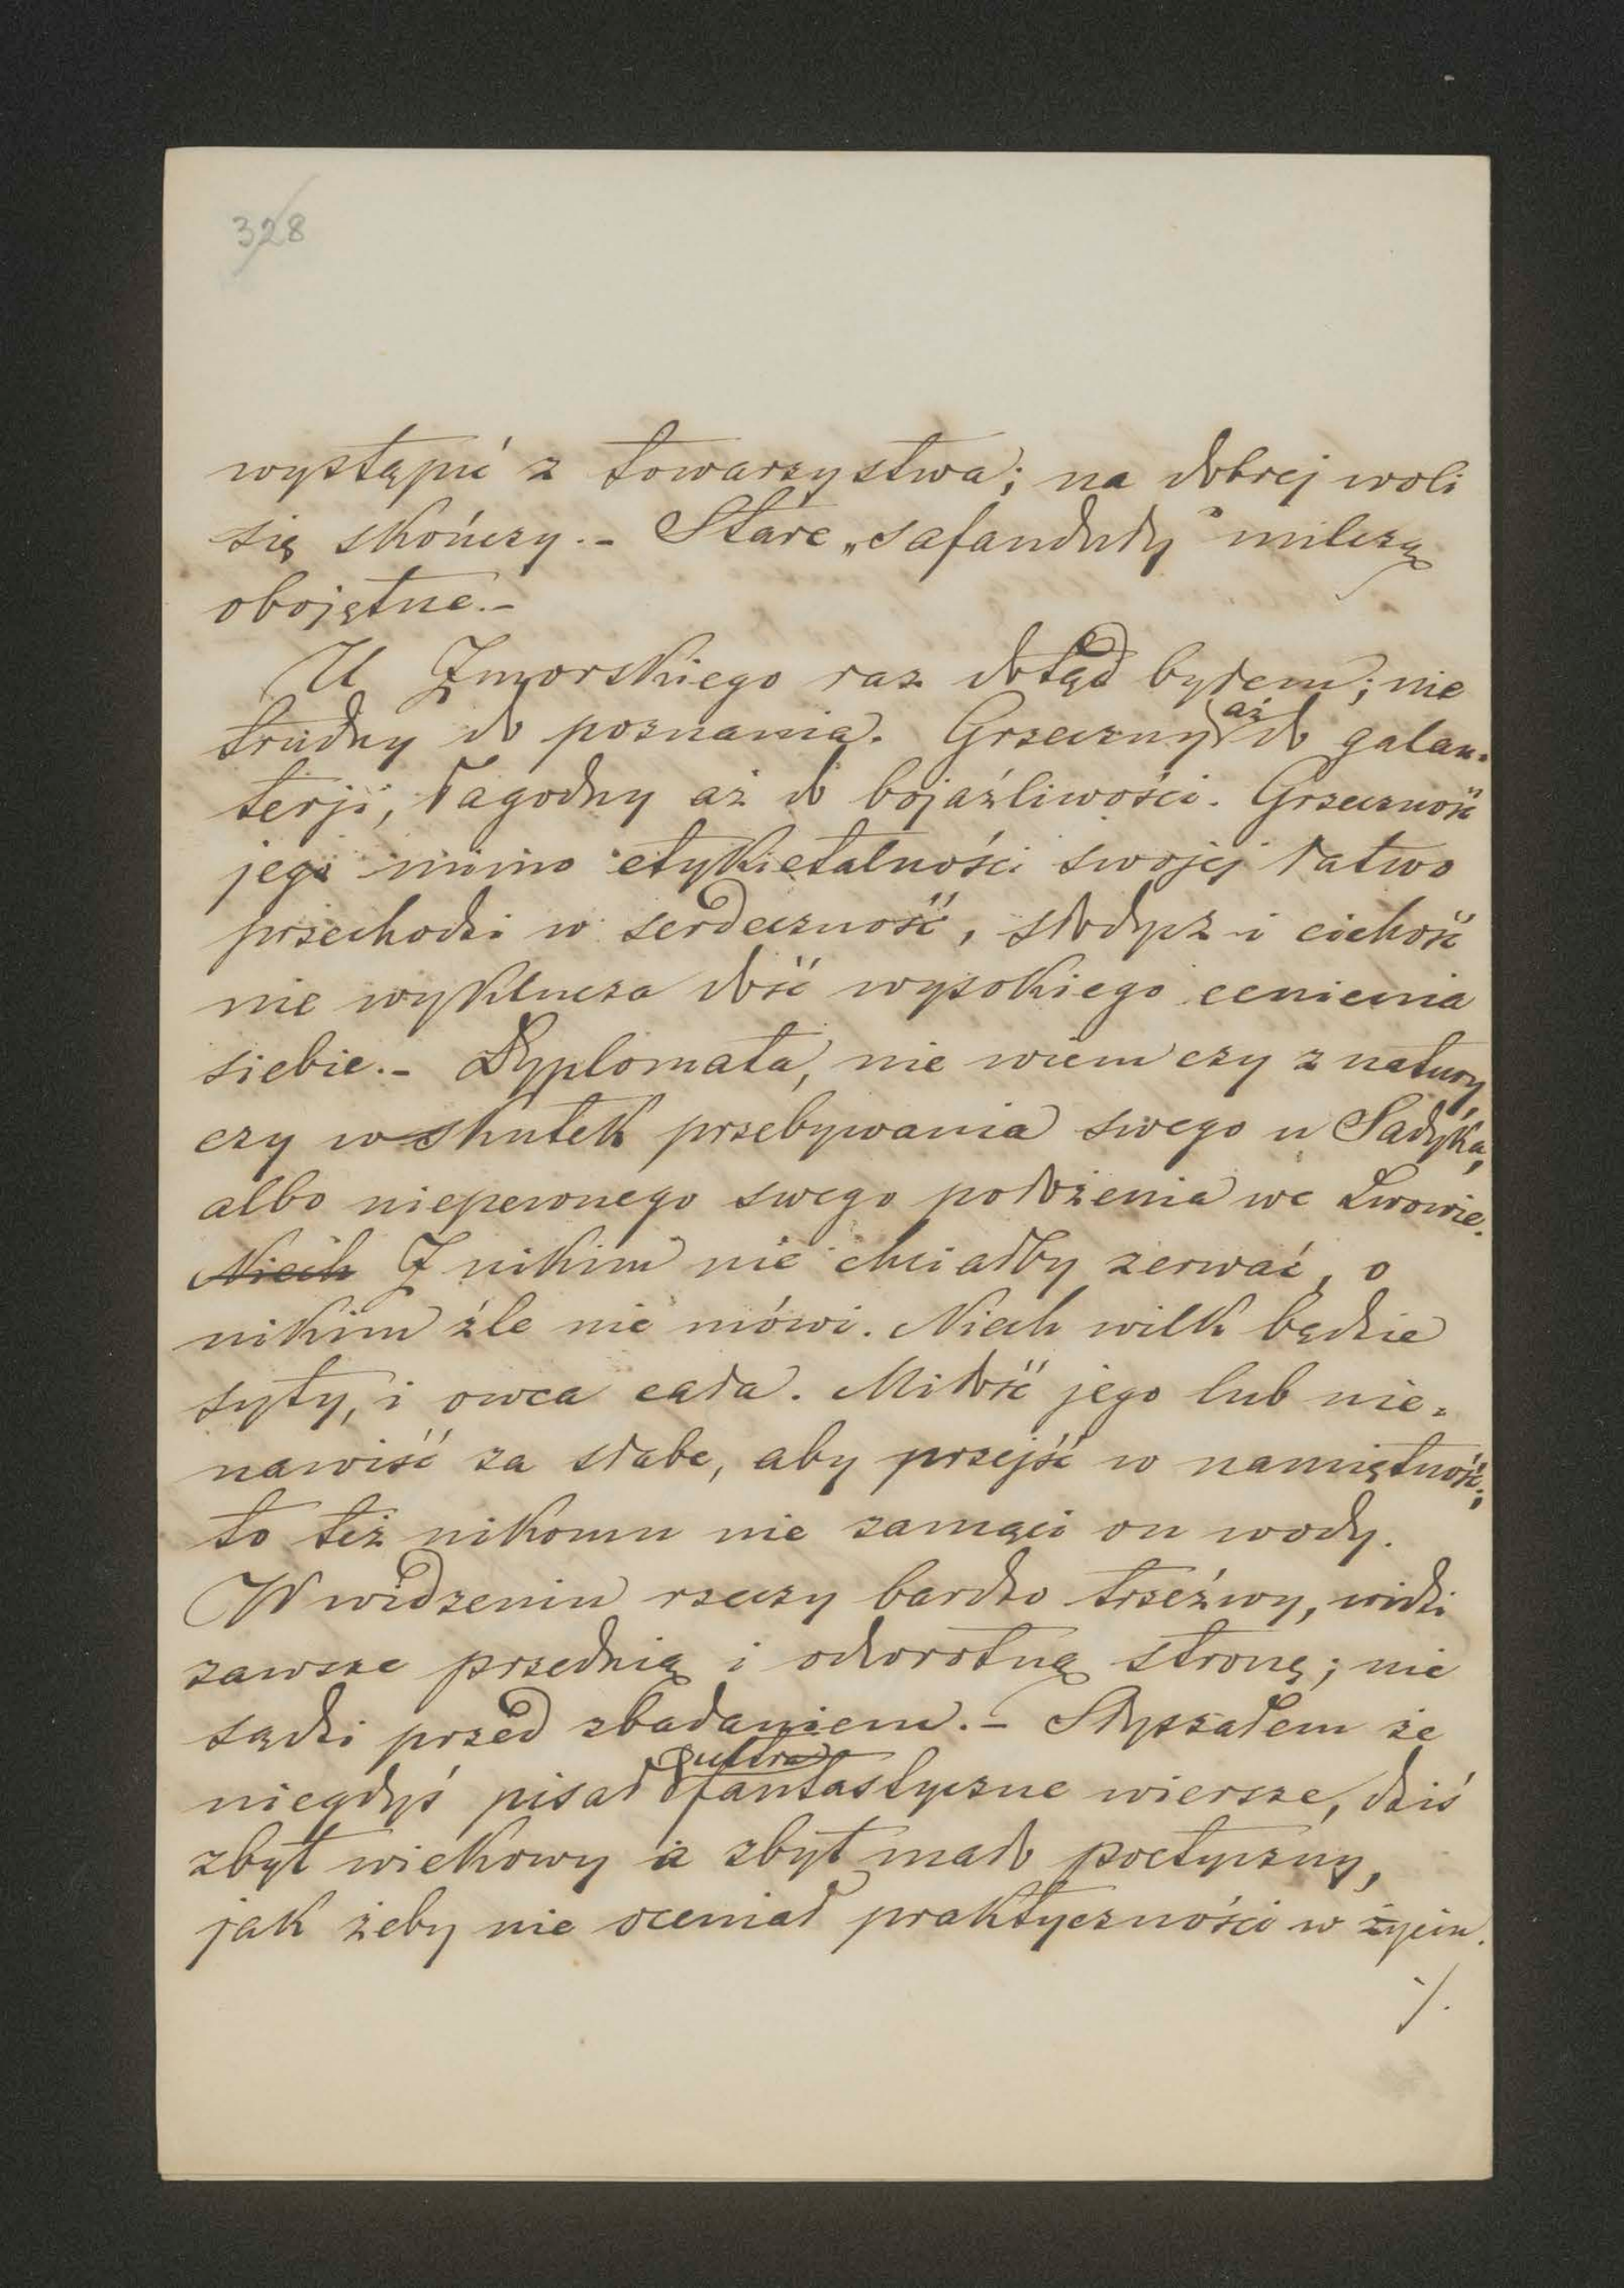 328
wystąpić z towarzystwa; na dobrej woli
się skończy.- Stare „safanduły” milczą
obojętne.-
U Zmorskiego raz dotąd byłem; nie
trudny do poznania. Grzeczny aż do galan-
terji, łagodny aż do bojaźliwości. Grzeczność
jego mimo etykietalności swojej łatwo
przechodzi w serdeczność, słodycz i cichość
nie wyklucza dość wysokiego cenienia
siebie.- Dyplomata, nie wiem czy z natury
czy wskutek przebywania swego u Sadyka,
albo niepewnego swego położenia we Lwowie.
Niech Z nikim nie chciałby zerwać, o
nikim źle nie mówi. Niech wilk będzie
syty, i owca cała. Miłość jego lub nie-
nawiść za słabe, aby przejść w namiętność;
to też nikomu nie zamąci on wody.
W widzeniu rzeczy bardzo trzeźwy, widzi
zawsze przednią i odwrotną stronę; nie
sądzi przed zbadaniem.- Słyszałem że
niegdyś pisał ultra fantastyczne wiersze, dziś
zbyt wiekowy i zbyt mało poetyczny,
jak żeby nie oceniał praktyczności w życiu.
·/.